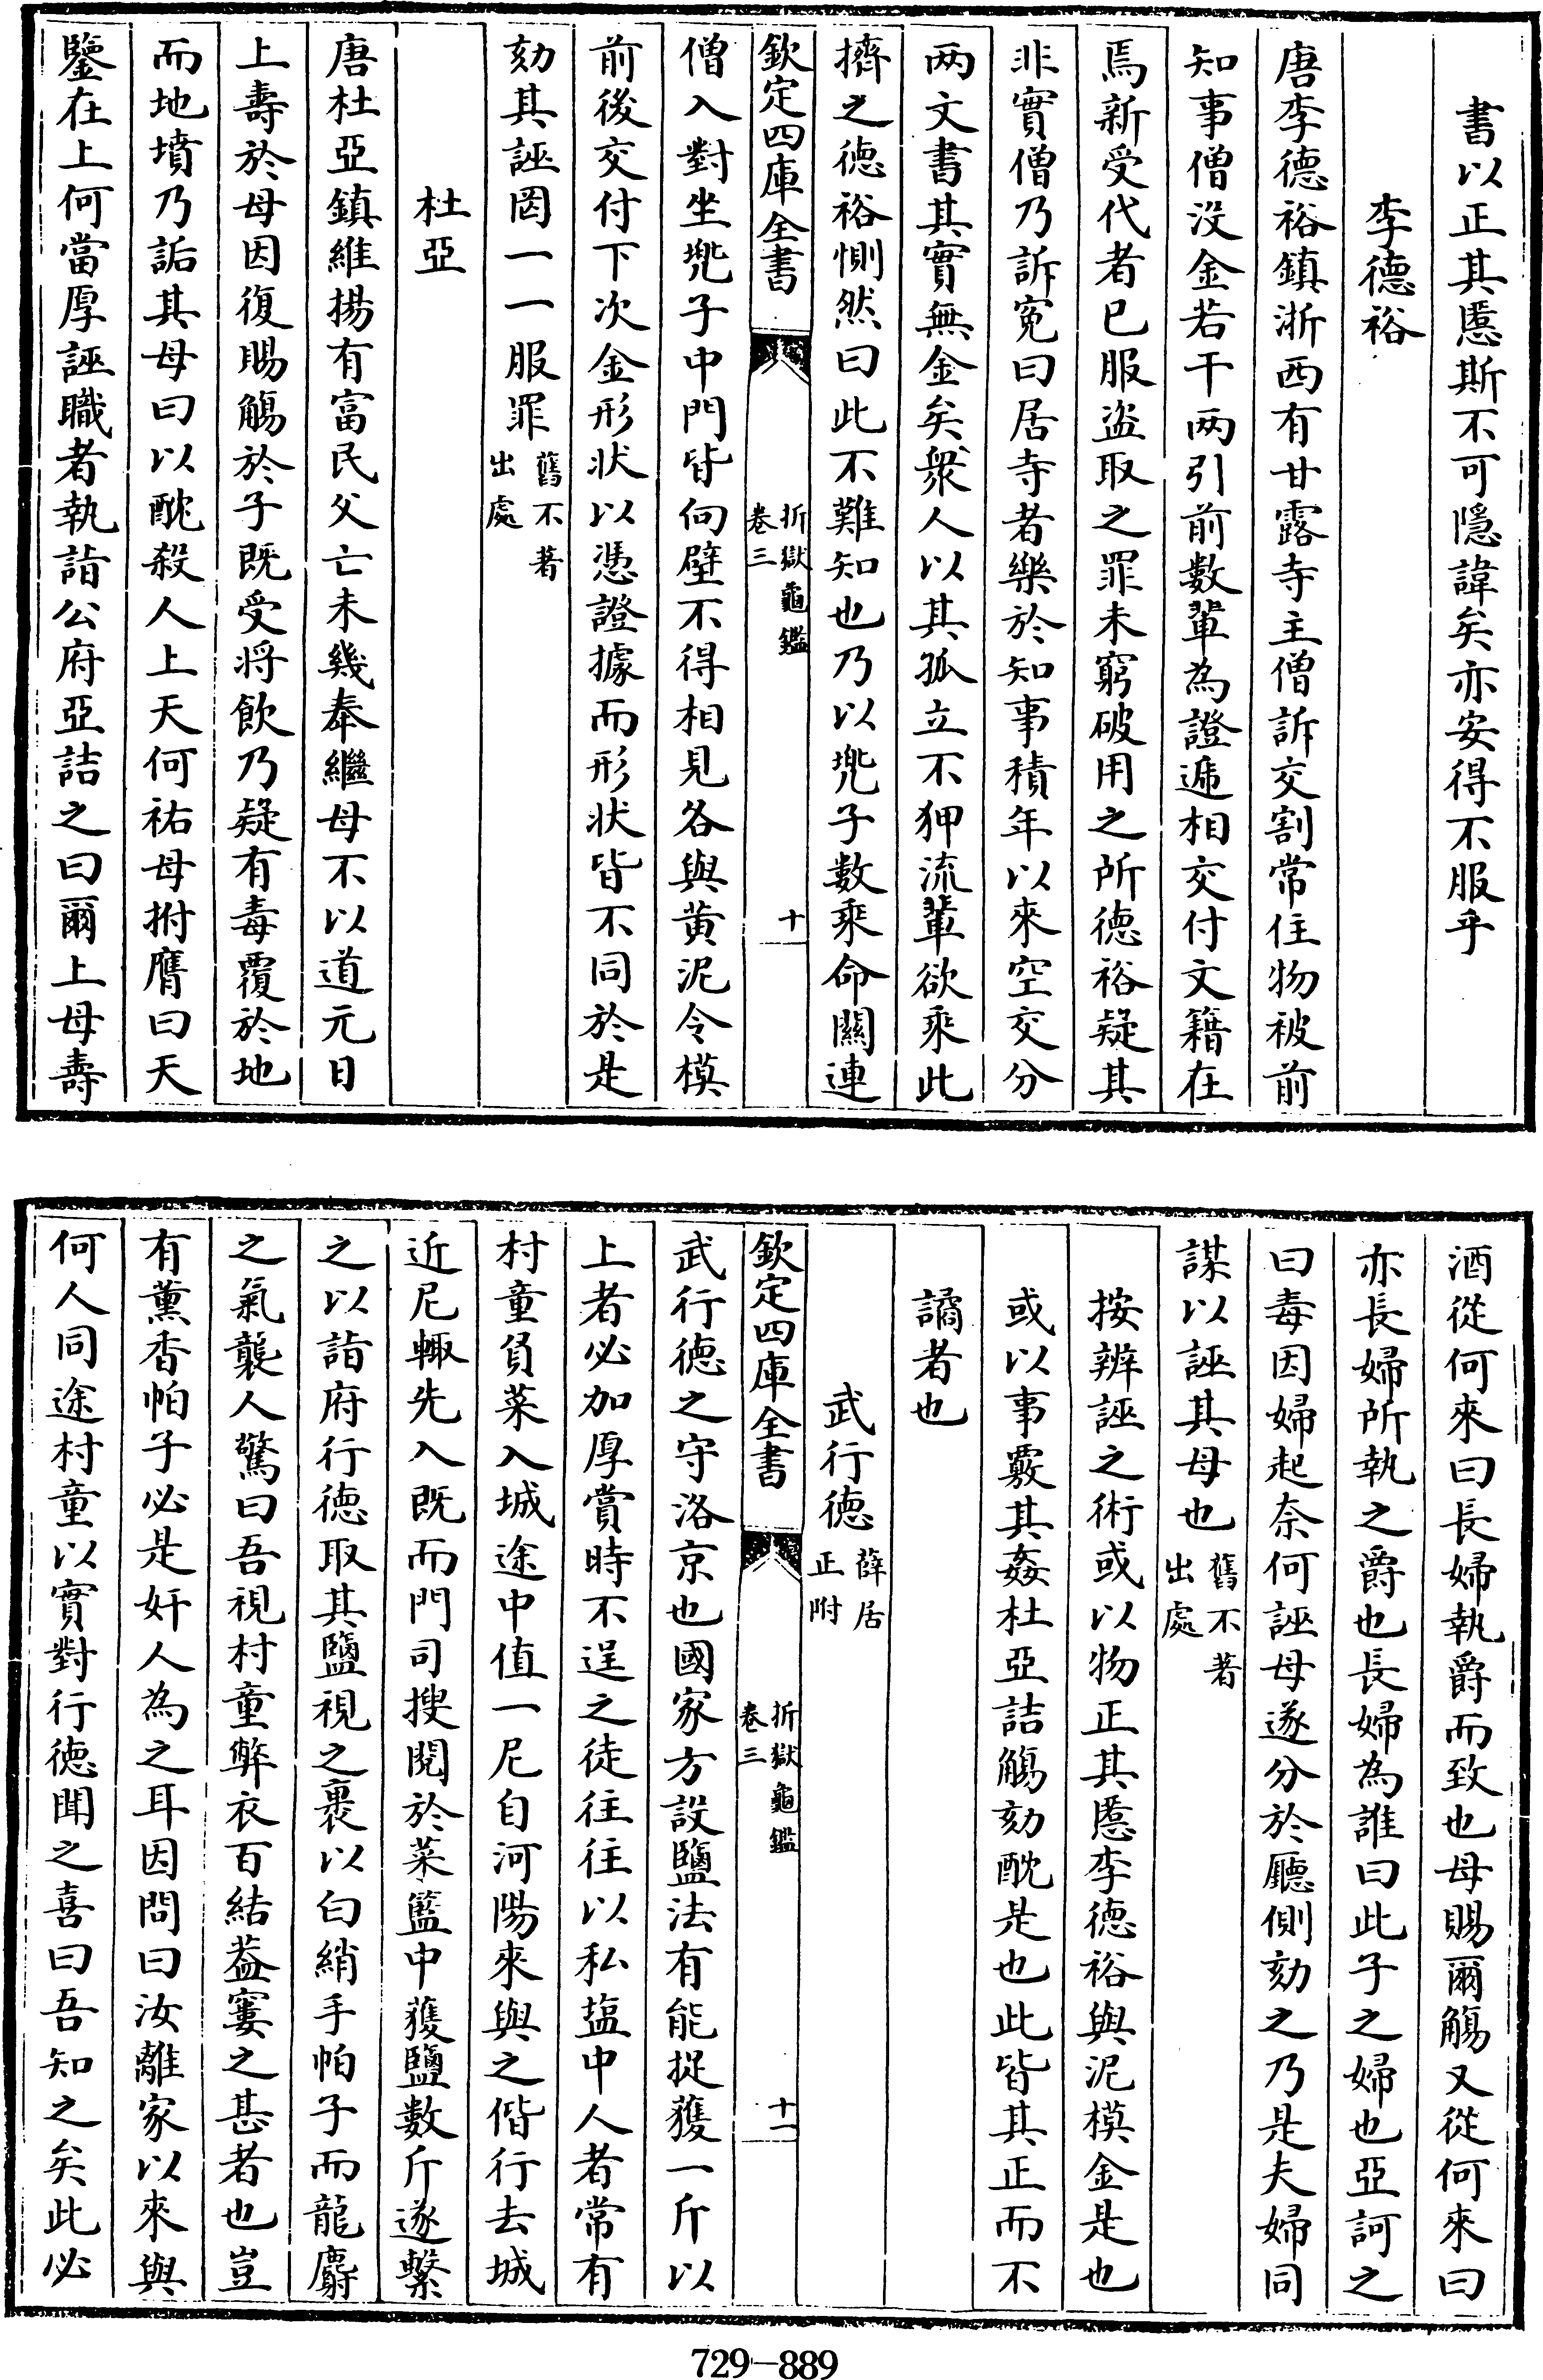 書以正其慝斯不可隱諱矣亦安得不服乎
李德裕
唐李德裕鎮浙西有甘露寺主僧訴交割常住物被前
知事僧没金若干两引前數輩為證遞相交付文籍在
焉新受代者已服盜取之罪未窮破用之所德裕疑其
非實僧乃訴冤曰居寺者樂於知事積年以來空交分
两文書其實無金矣衆人以其孤立不狎流輩欲乘此
擠之德裕惻然曰此不難知也乃以兠子數乘命關連
欽定四庫全書
折獄龜鑑
卷三
十
僧入對坐兠子中門皆向壁不得相見各與黄泥令模
前後交付下次金形状以憑證據而形状皆不同於是
劾其誣罔一一服罪舊不著
出處
杜亞
唐杜亞鎮維揚有富民父亡未幾奉繼母不以道元日
上壽於母因復賜觴於子既受将飲乃疑有毒覆於地
而地墳乃詬其母曰以酖殺人上天何祐母拊膺曰天
鑒在上何當厚誣職者執詣公府亞詰之曰爾上母壽
酒從何來曰長婦執爵而致也母賜爾觴又從何來曰
亦長婦所執之爵也長婦為誰曰此子之婦也亞訶之
曰毒因婦起奈何誣母遂分於廳側劾之乃是夫婦同
謀以誣其母也舊不著
出處
按辨誣之術或以物正其慝李德裕與泥模金是也
或以事覈其姦杜亞詰觴劾酖是也此皆其正而不
譎者也
武行德薛居
正附
欽定四庫全書
折獄龜鑑
卷三
十一
武行德之守洛京也國家方設鹽法有能捉獲一斤以
上者必加厚賞時不逞之徒往往以私盐中人者常有
村童負菜入城途中值一尼自河陽來與之偕行去城
近尼輙先入既而門司搜閱於菜籃中獲鹽數斤遂繫
之以詣府行德取其鹽視之裹以白綃手帕子而龍麝
之氣襲人驚曰吾視村童弊衣百結葢窶之甚者也豈
有薰香帕子必是奸人為之耳因問曰汝離家以來與
何人同途村童以實對行德聞之喜曰吾知之矣此必
729-889